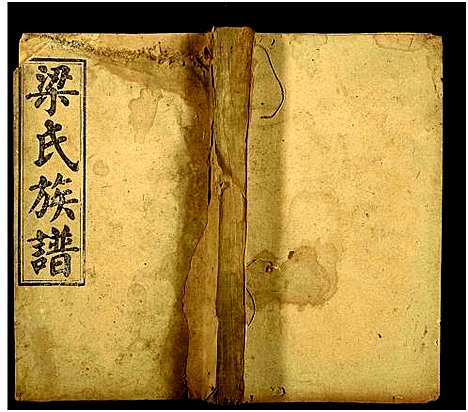 梁氏族譜